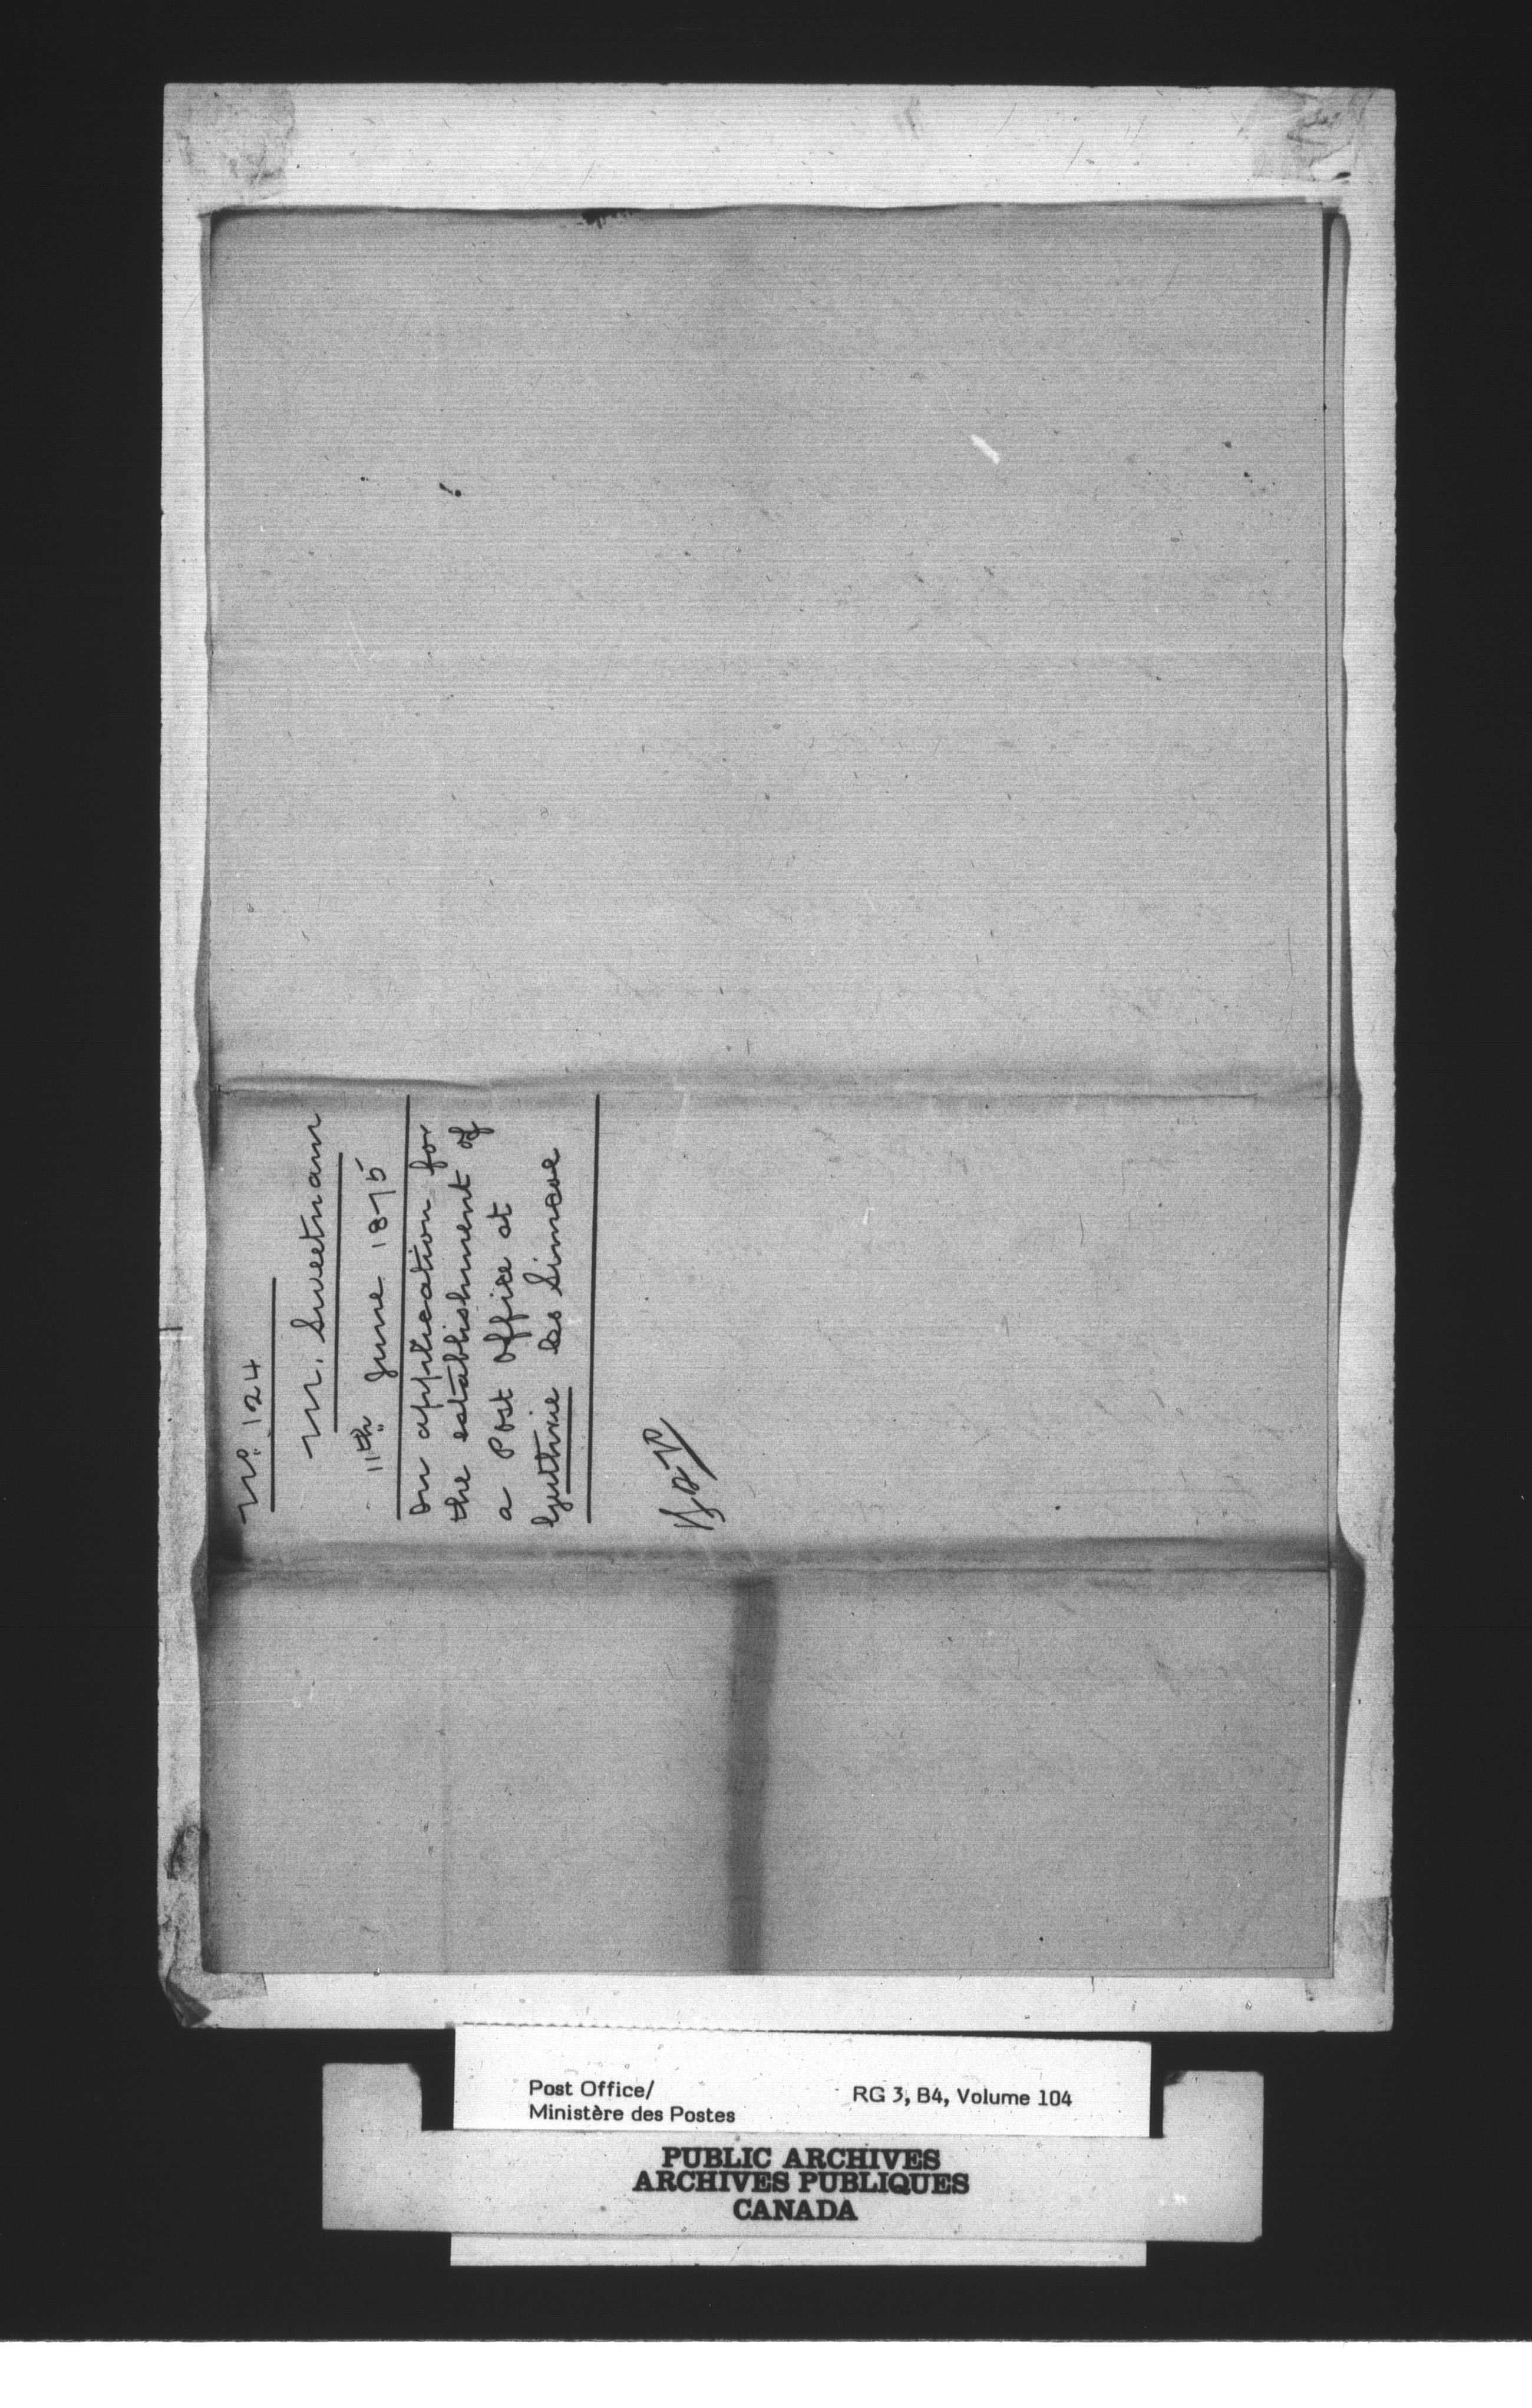 No. 124
M. Sweetnam
11th June 1875
On application for
the establishment of
a Post Office at
Guthrie Co Simcoe
Post Office/
Ministère des Postes
RG 3, B4, Volume 104
PUBLIC ARCHIVES
ARCHIVES PUBLIQUES
CANADA